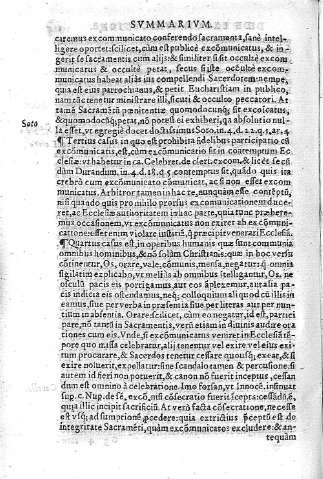 SVMMARIVM
caremus excommunicato conferendo sacramenta, sanè intel-
ligere oportet: scilicet, cùm est publicè excõmunicatus, & in-
gerit se sacramentis cum alijs: & similiter si sit occultè excom
municatus & occultè petat, secus si iste occultè excom-
municatus habeat alias ius compellendi Sacerdotem nempe,
quia est eius parrochianus, & petit Eucharistiam in publico,
nam eâ tenetur ministrare illi, sicuti & occulto peccatori. At
tamē Sacramētū pœnitentiæ quomodocunq; sit excõicatus,
& quomodocũq; petat, nõ potest ei exhiberi, qa absolutio nul-
Soto la esset, vt egregiè docet doctissimus Soto. in 4. d. 22. q. 1. ar. 4
¶ Tertius casus in quo est prohibita fidelibus participatio cũ
excõmunicatis, est, cùm excõmunicatio sit in contemptũ Ec-
clesiæ: vt habetur in ca. Celebret. de cleri. excom. & licèt se cũ
dùm Durandum, in 4. d. 18. q. 5 contemptus sit, quãdo quis ita
crebrò cum excomunicato cõmunicat, ac si non esset excom
municatus. Arbitror tamen in hac re, nunquam esse contẽptũ,
nisi quando quis pro nihilo prorsus excomunicationem duce-
ret, ac Ecclesiæ authoritatem in hac parte, quatunc præbere-
mus occasionem, vt excõmunicatus non exiret ab excõmuni-
catione: & fortem violare instituti, q̃ præcipit venerari Ecclesiã.
¶ Quartus casus est, in operibus humanis quæ sunt communia
omnibus hominibus, & nõ solùm Christianis: quæ in hoc versu
cõtinentur, Os, orare, vale, cõmunio, mensa, negatur. q̃ omnia
sigillatim explicabo, vt meliùs ab omnibus itelligantur, Os, ne
osculũ pacis eis porrigamus, aut eos âplexemur, aut alia pa-
cis indicia eis ostendamus, neq; colloquium aliquod cũ illis in
eamus, siue per verba in præsentia siue per literas aut per nun-
tium in absentia. Orare scilicet, cùm eo negatur, id est, partici
pare, nõ tantũ in Sacramentis, verũ etiam in diuinis audire ora
tiones cum eis. Vnde, si excõmunicatus veniret in Ecclesiã tẽ-
pore quo missa celebratur, alij tenentur vel exire vel eius exi-
tum procurare, & Sacerdos tenetur cessare quousq; exeat, & si
exire noluerit, expellatur sine scandalo tamen & percusione. si
autem id fieri non poterit, & canon nõ fuerit inceptus, cessan
dum est omnino à celebratione. Imo forsan, vt Innocẽ. insinuat
sup. c. Nup. de sẽ. excõ. nisi cõsecratio fuerit icepta: cessãdũ ẽ,
quia illic incipit sacrificiũ. At verò facta cõsecratione, necesse
est vsq; ad sumptionẽ ꝓcedere: quia extrictius p̃ceptũ est de
integritate Sacramẽti, quàm excõmunicatos excludere: & an-
tequàm